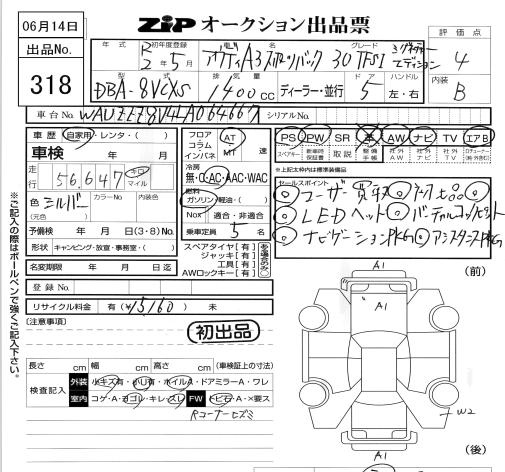 06月14日
ZIP オークション出品票
出品No.
318
年式 初年度登録 車名 グレード
R2年5月 アウディA3スポーツバック 30 TFSI
評価点
4
型式 排気量 ドア ハンドル
DBA-8VCXS 1400cc ディーラー・並行 5 左・右
内装
B
車台No. WAUZZZ8V4LA064667 シリアルNo.
車歴 自家用・レンタ・( )
車検 年 月
走行 56,647 キロ マイル
色 シルバー カラーNo. 内装色
(元色)
予備検 年 月 日(3・8)No.
形状 キャンピング・放宣・事務室・( )
名変期限 年 月 日迄
登録No.
リサイクル料金 有(¥ 15160 ) 未
フロア コラム インパネ AT MT 速
冷房
無・C・AC・AAC・WAC
燃料
ガソリン・軽油・( )
Nox 適合・非適合
乗車定員 5 名
スペアタイヤ[有]
ジャッキ[有]
工具[有]
AWロックキー[有]
PS PW SR 本革 AW ナビ TV エアB
スペアキー 新車時保証書 取説 整備手帳 社外AW 社外ナビ 社外TV
※上記太枠内は標準装備品
セールスポイント
◎ユーザー買取
◎LEDヘッド ◎バーチャルコックピット
◎ナビゲーションPKG ◎アシスタンスPKG
※ご記入の際はボールペンで強くご記入下さい。
(注意事項)
初出品
長さ cm 幅 cm 高さ cm (車検証上の寸法)
検査記入
外装 小キズ有・小凹有・ホイルA・ドアミラーA・ワレ
室内 コゲ・A・ヨゴレ・キレ・スレ FW トビ石・A・×要ス
Rコーナーヒズミ
(前)
A1
A1
W2
A1
(後)